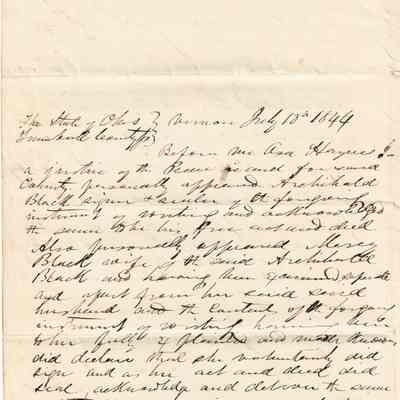 The State of Ohio } Vernon July 10th 1844
Trumbull County ss }
Before me Asa Haynes
a Justice of the Peace in and for said
County personally appeared Archibald
Black signer & sealer of the foregoing
instrument of writing and acknowledged
the same to be his free act and deed
Also personally appeared Mercy
Black wife of the said Archibald
Black and having been examined seperate
and apart from her said
husband and the Content of the foregoing
instrument of writing known
to her fully explained and made known
did declare that she voluntarily did
sign and as her act and deed did
seal, acknowledge and deliver the same